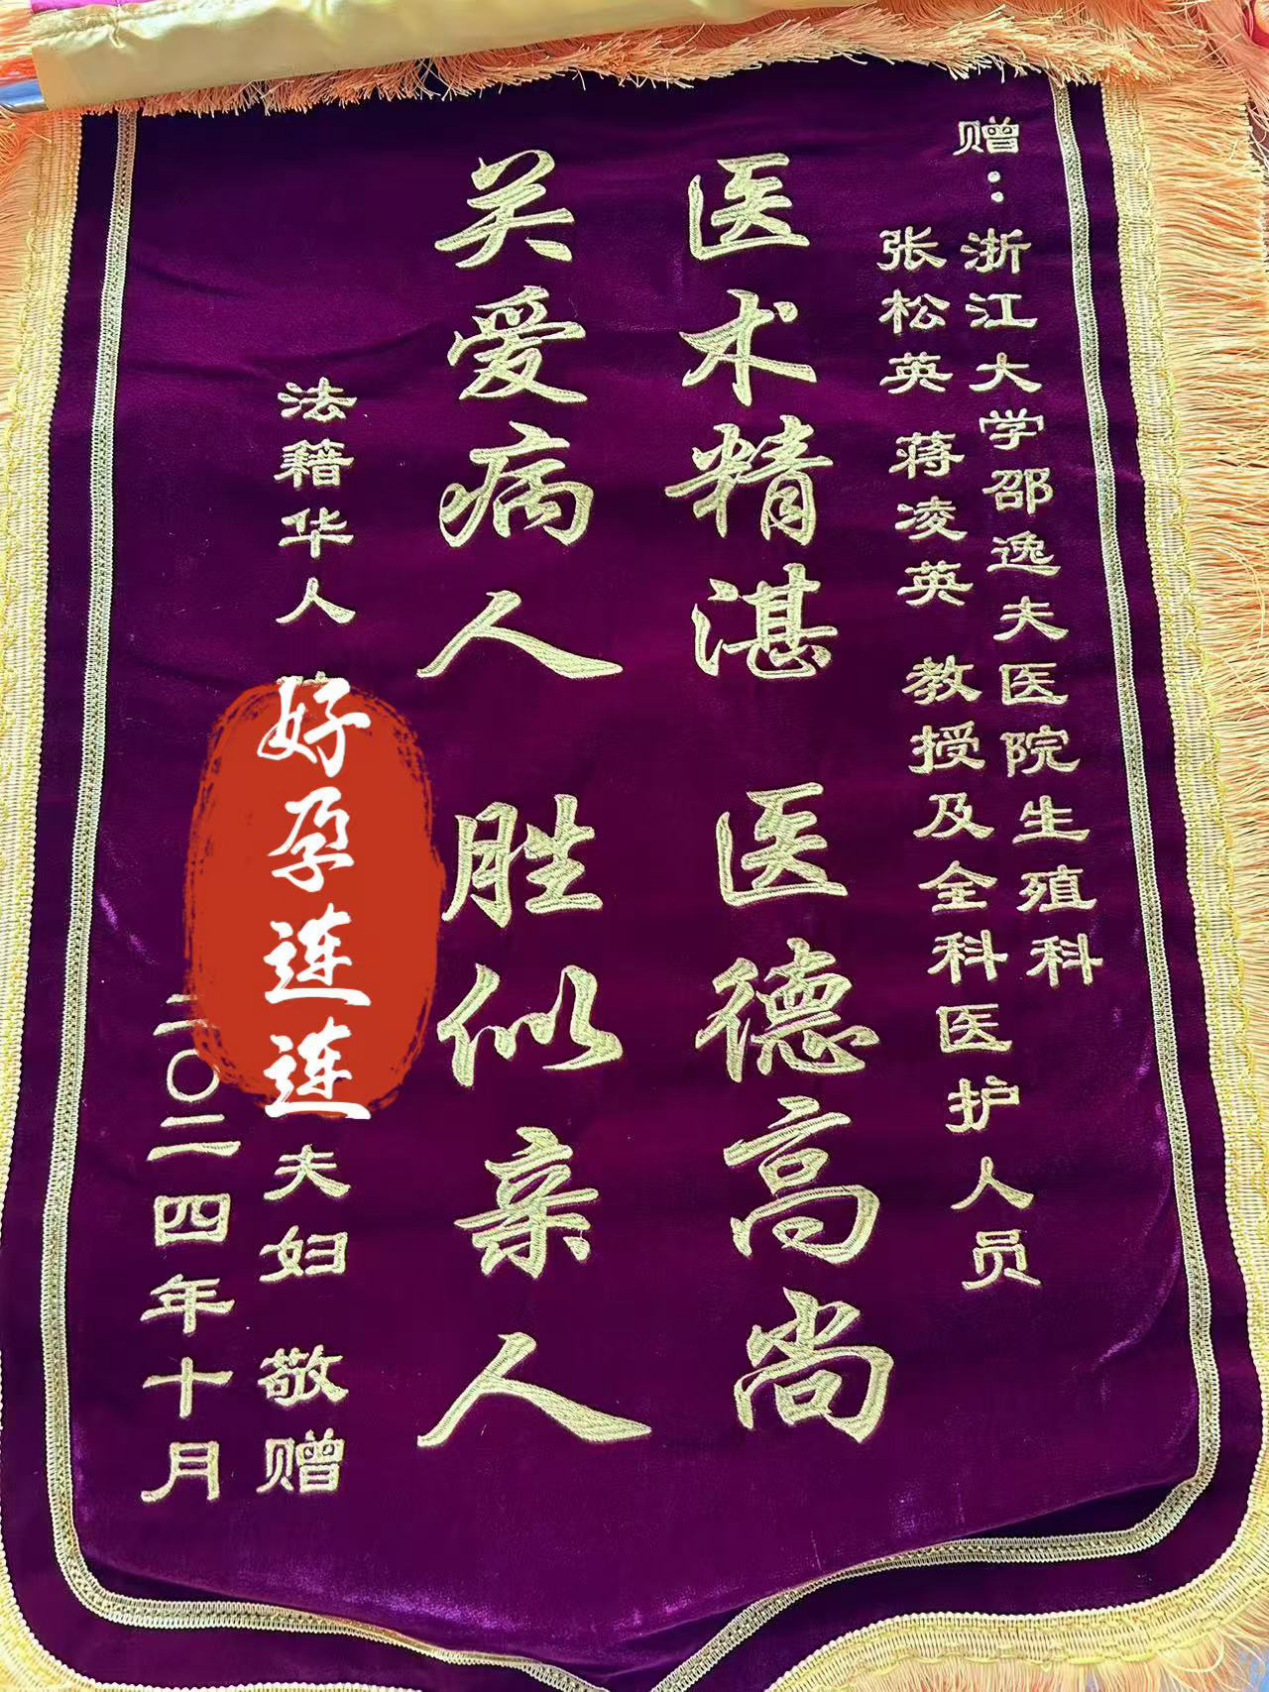 赠：浙江大学邵逸夫医院生殖科
张松英 蒋凌英 教授及全科医护人员
医术精湛 医德高尚
关爱病人 胜似亲人
法籍华人
夫妇 敬赠
好孕连连
二〇二四年十月